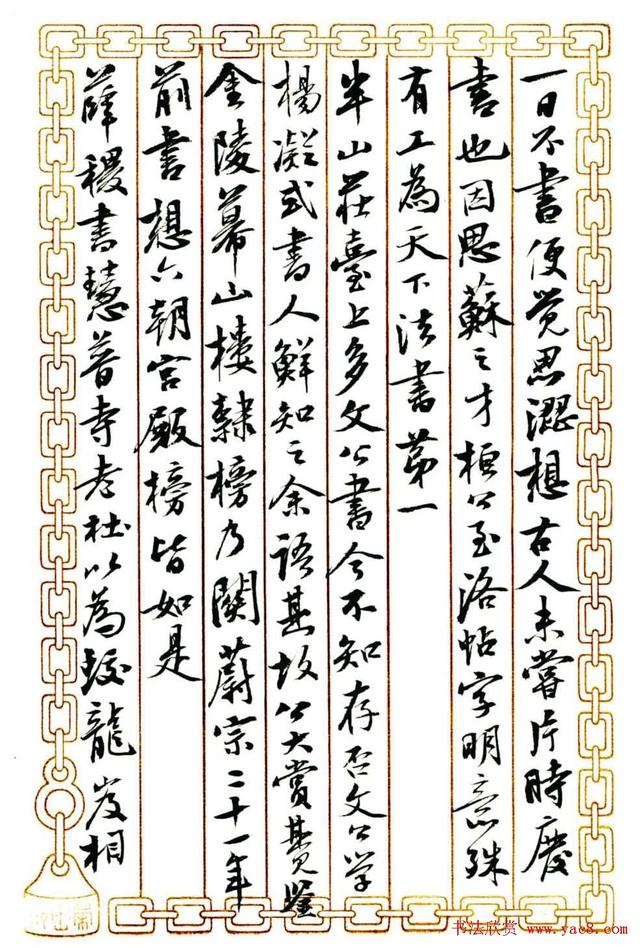 一日不書便觉思澀想古人未嘗片時廢
書也因思蘇之才桓公至洛帖字明意殊
有工為天下法書第一
半山莊臺上多文公書今不知存否文公学
楊凝式書人鮮知之余語其故公大賞其見鑒
金陵幕山樓隸榜乃關蔚宗二十一年
前書想六朝宮殿榜皆如是
薛稷書慧普寺老杜以為蛟龍岌相
书法欣赏 www.yac8.com